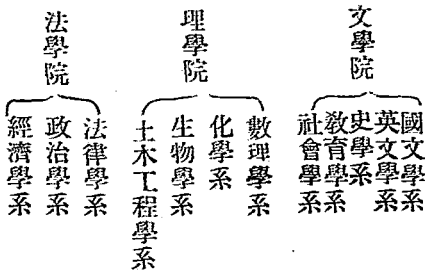 文學院
國文學系
英文學系
史學系
教育學系
社會學系
理學院
數理學系
化學系
生物學系
土木工程學系
法學院
法律學系
政治學系
經濟學系